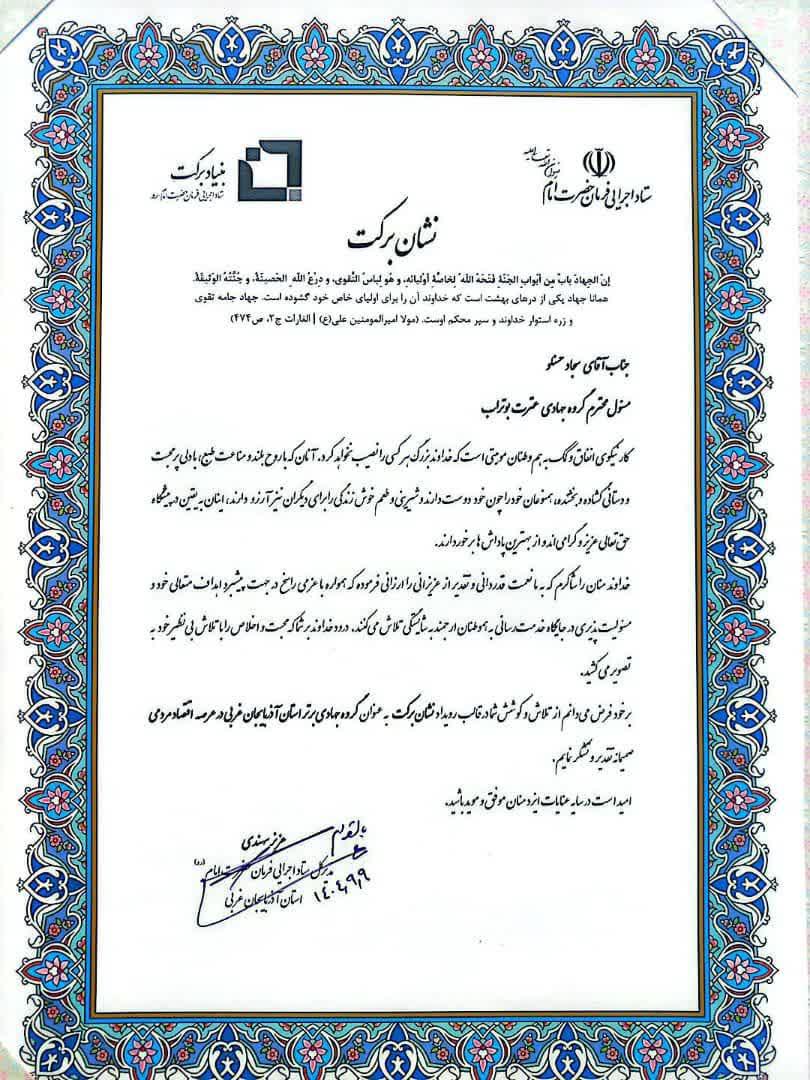 ستاد اجرایی فرمان حضرت امام
بنیاد برکت
ستاد اجرایی فرمان حضرت امام
نشان برکت
إنَّ الجِهادَ بابٌ مِن أبوابِ الجَنَّةِ فَتَحَهُ اللهُ لِخاصَّةِ أوْلیائِهِ، و هُو لِباسُ التَّقوی، و دِرْعُ اللهِ الحَصینَةُ، و جُنَّتُهُ الوَثیقَةُ.
همانا جهاد یکی از درهای بهشت است که خداوند آن را برای اولیای خاص خود گشوده است. جهاد جامه تقوی
و زره استوار خداوند و سپر محکم اوست. (مولا امیرالمومنین علی(ع) | الغارات ج۲، ص۴۷۴)
جناب آقای سجاد حسنلو
مسئول محترم گروه جهادی عترت بوتراب
کار نیکوی انفاق و کمک به هم وطنان موهبتی است که خداوند بزرگ هر کسی را نصیب نخواهد کرد. آنان که با روح بلند و مناعت طبع، با دلی پر محبت
و دستانی گشاده و بخشنده، همنوعان خود را چون خود دوست دارند و شیرینی و طعم خوش زندگی را برای دیگران نیز آرزو دارند، اینان به یقین در پیشگاه
حق تعالی عزیز و گرامی اند و از بهترین پاداش ها برخوردارند.
خداوند منان را شاکرم که به ما نعمت قدردانی و تقدیر از عزیزانی را ارزانی فرموده که همواره با عزمی راسخ در جهت پیشبرد اهداف متعالی خود و
مسئولیت پذیری در جایگاه خدمت رسانی به هموطنان ارجمند به شایستگی تلاش می کنند. درود خداوند بر شما که محبت و اخلاص را با تلاش بی نظیر خود به
تصویر می کشید.
بر خود فرض می دانم از تلاش و کوشش شما در قالب رویداد نشان برکت به عنوان گروه جهادی برتر استان آذربایجان غربی در عرصه اقتصاد مردمی
صمیمانه تقدیر و تشکر نمایم.
امید است در سایه عنایات ایزد منان موفق و موید باشید.
عزیز مهندی
مدیر کل ستاد اجرایی فرمان حضرت امام (ره)
استان آذربایجان غربی
۱۴۰۴,۹,۹